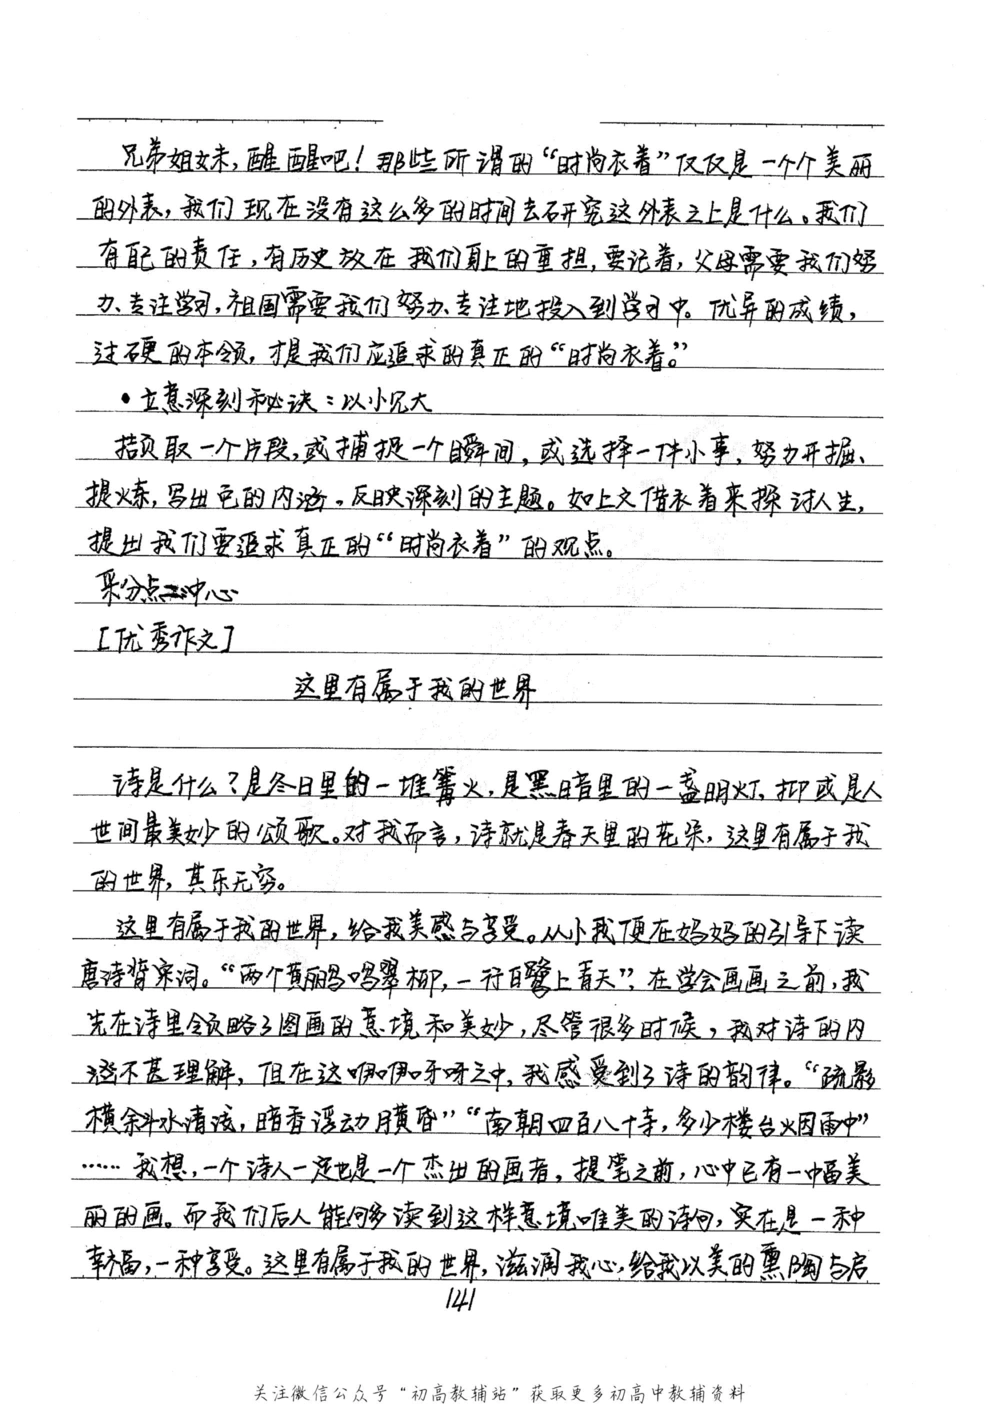 兄弟姐妹,醒醒吧!那些所谓的“时尚衣着”仅仅是一个个美丽
的外表,我们现在没有这么多的时间去研究这外表之上是什么。我们
有自己的责任,有历史放在我们身上的重担,要记着,父母需要我们努
力、专注学习,祖国需要我们努力、专注地投入到学习中。优异的成绩,
过硬的本领,才是我们应追求的真正的“时尚衣着。”
•立意深刻秘诀:以小见大
撷取一个片段,或捕捉一个瞬间,或选择一件小事,努力开掘、
提炼,写出它的内涵,反映深刻的主题。如上文借衣着来探讨人生,
提出我们要追求真正的“时尚衣着”的观点。
采分点二:中心
[优秀作文]
这里有属于我的世界
诗是什么?是冬日里的一堆篝火,是黑暗里的一盏明灯,抑或是人
世间最美妙的颂歌。对我而言,诗就是春天里的花朵,这里有属于我
的世界,其乐无穷。
这里有属于我的世界,给我美感与享受。从小我便在妈妈的引导下读
唐诗背宋词。“两个黄鹂鸣翠柳,一行白鹭上青天”,在学会画画之前,我
先在诗里领略了图画的意境和美妙,尽管很多时候,我对诗的内
涵不甚理解,但在这咿咿呀呀之中,我感受到了诗的韵律。“疏影
横斜水清浅,暗香浮动月黄昏”“南朝四百八十寺,多少楼台烟雨中”
……我想,一个诗人一定也是一个杰出的画者,提笔之前,心中已有一幅美
丽的画。而我们后人能够多读到这样意境唯美的诗句,实在是一种
幸福,一种享受。这里有属于我的世界,滋润我心,给我以美的熏陶与启
141
关注微信公众号“初高教辅站”获取更多初高中教辅资料